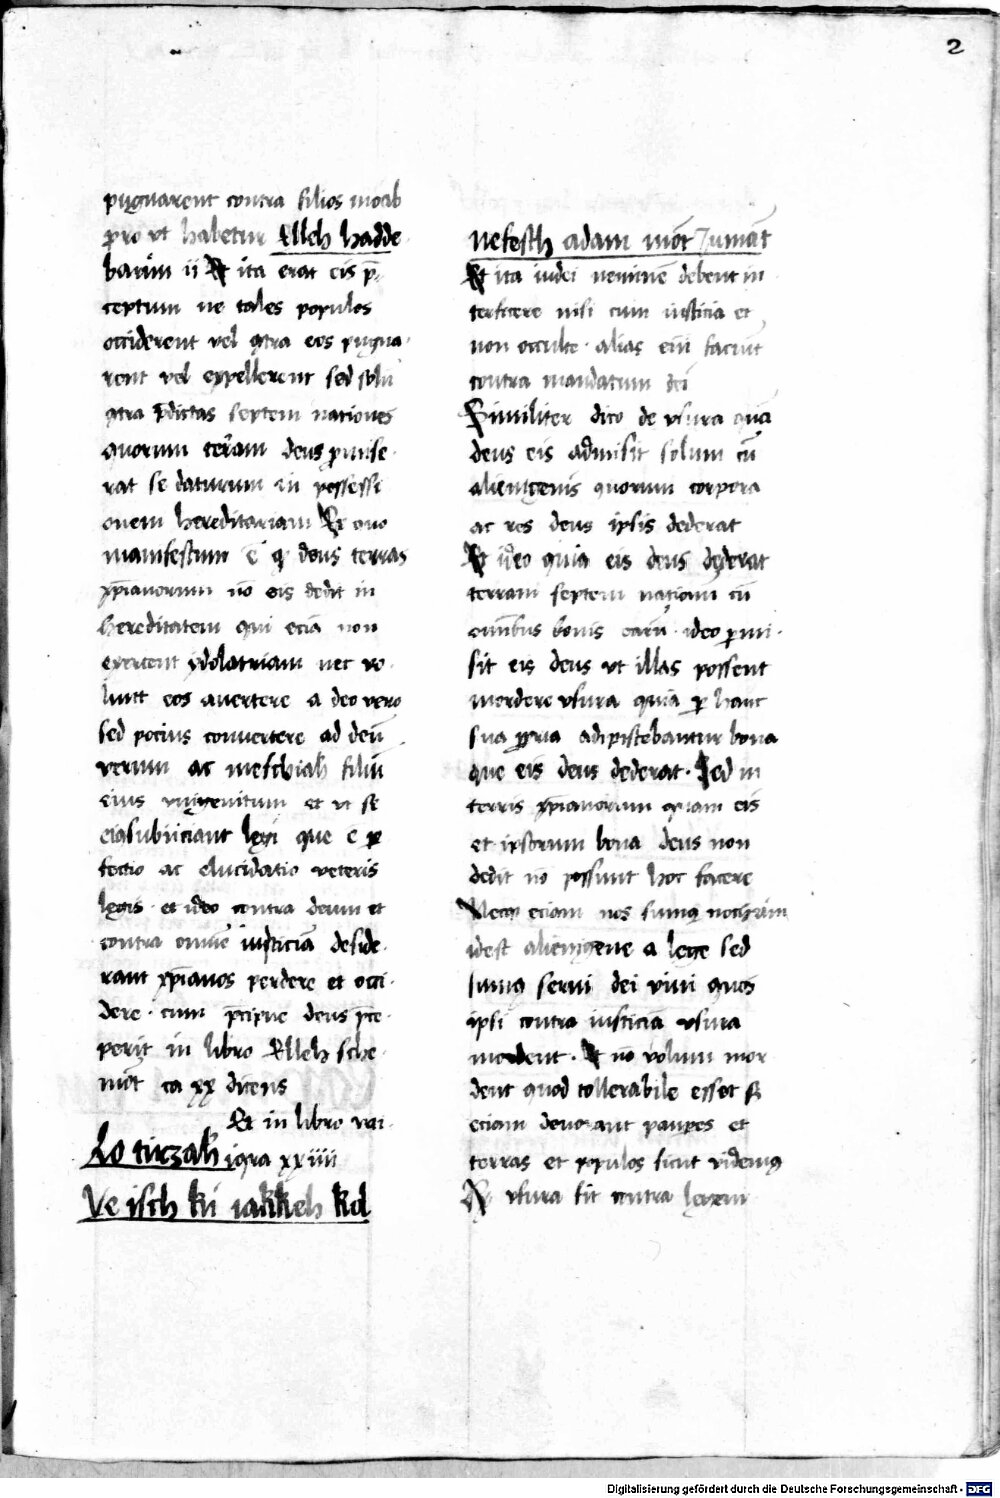 2
pugnarent contra filios moab
pro vt habetur Elleh hadde
barim ii Et ita erat eis p̄
ceptum ne tales populos
occiderent vel ꝯtra eos pugna
rent vel expellerent sed solū
ꝯtra p̄dictas septem nationes
quorum terram deus p̱mise
rat se daturum in possessi
onem hereditariam Et quo
manifestum ē ꝙ deus terras
xp̄ianorum nō eis dedit in
hereditatem qui eciā non
exercent ydolatriam nec vo
lunt eos auertere a deo vero
sed pocius conuertere ad deū
verum ac meschiah filiū
eius vnigenitum et vt se
eiq subiiciant legi que ē ꝑ
fectio ac elucidatio veteris
legis · et ideo contra deum et
contra omnē iusticiā deside
rant xp̄ianos perdere et occi
dere · cum p̄cipue deus p̄ce
perit in libro Elleh sche
mot ca xx dicens
Et in libro vai
Lo tirzah iqra xxiiii
Ve isch ki iakkeh kol
nefesch adam mot Jumat
Et ita iudei neminē debent in
terficere nisi cum iusticia et
non occulte · alias enī faciūt
contra mandatum dei
Similiter dico de vsura quā
deus eis admisit solum cū
alienigenis quorum corpora
ac res deus ipsis dederat
Et ideo quia eis deus dederat
terram septem nationū cū
omnibus bonis earū · ideo ꝑmi
sit eis deus vt illas possent
mordere vsura quia ꝑ hanc
sua ꝓpria adipiscebantur bona
que eis deus dederat · Sed in
terris xp̄ianorum quam eis
et ipsorum bona deus non
dedit nō possunt hoc facere
Necꝫ eciam nos sumꝰ nochrim
idest alienigene a lege sed
sumꝰ serui dei viui quos
ipsi contra iusticiā vsura
mordent · Et nō solum mor
dent quod tollerabile esset sꝫ
eciam deuorant pauꝑes et
terras et populos sicut videmꝰ
ꝙ vsura sit contra legem
Digitalisierung gefördert durch die Deutsche Forschungsgemeinschaft - DFG